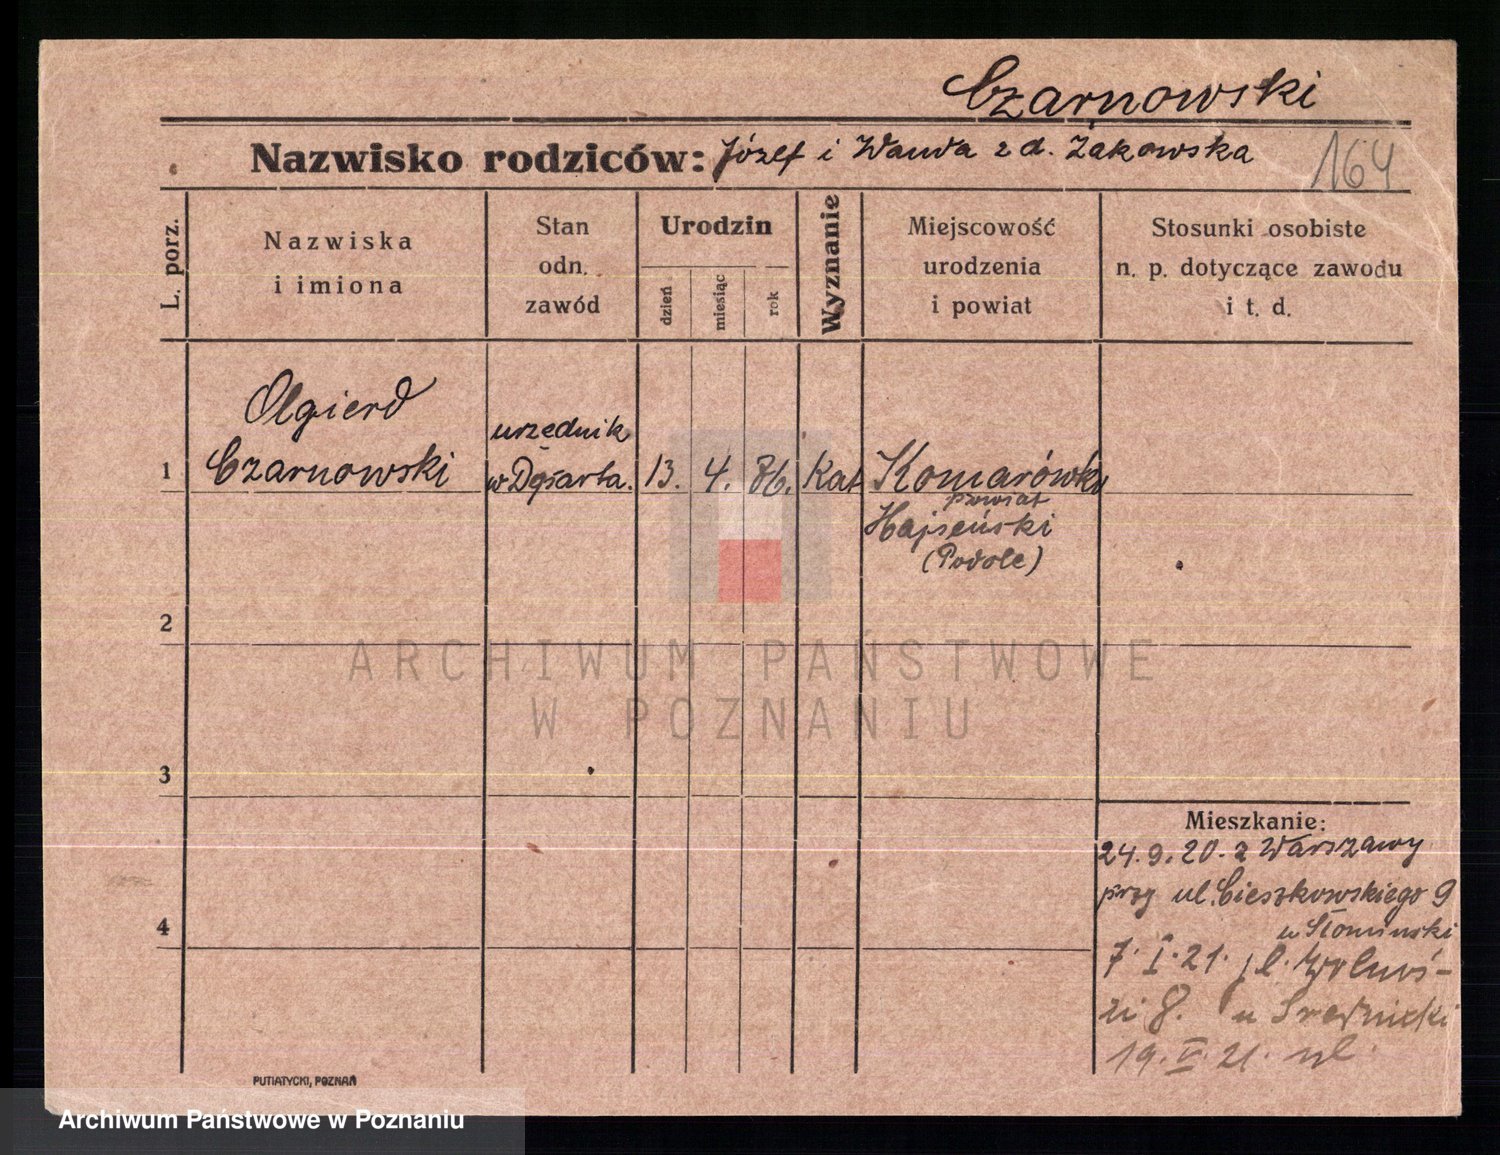 Czarnowski
Nazwisko rodziców: Józef i Wanda z d. Żakowska
164
L. porz.
Nazwiska
i imiona
Stan
odn.
zawód
Urodzin
dzień
miesiąc
rok
Wyznanie
Miejscowość
urodzenia
i powiat
Stosunki osobiste
n. p. dotyczące zawodu
i t. d.
Olgierd
urzędnik
1 Czarnowski w 13. 4. 86. Kat Komarówka
powiat
Hajseński
(Podole)
2
ARCHIWUM PAŃSTWOWE
W POZNANIU
3
Mieszkanie:
24.9.20. z Warszawy
przy ul. Cieszkowskiego 9
u Słomiński
4
7. I. 21. pl. Wolnoś-
ci 8. u Srednicki
19. V. 21. ul.
PUTIATYCKI, POZNAŃ
Archiwum Państwowe w Poznaniu